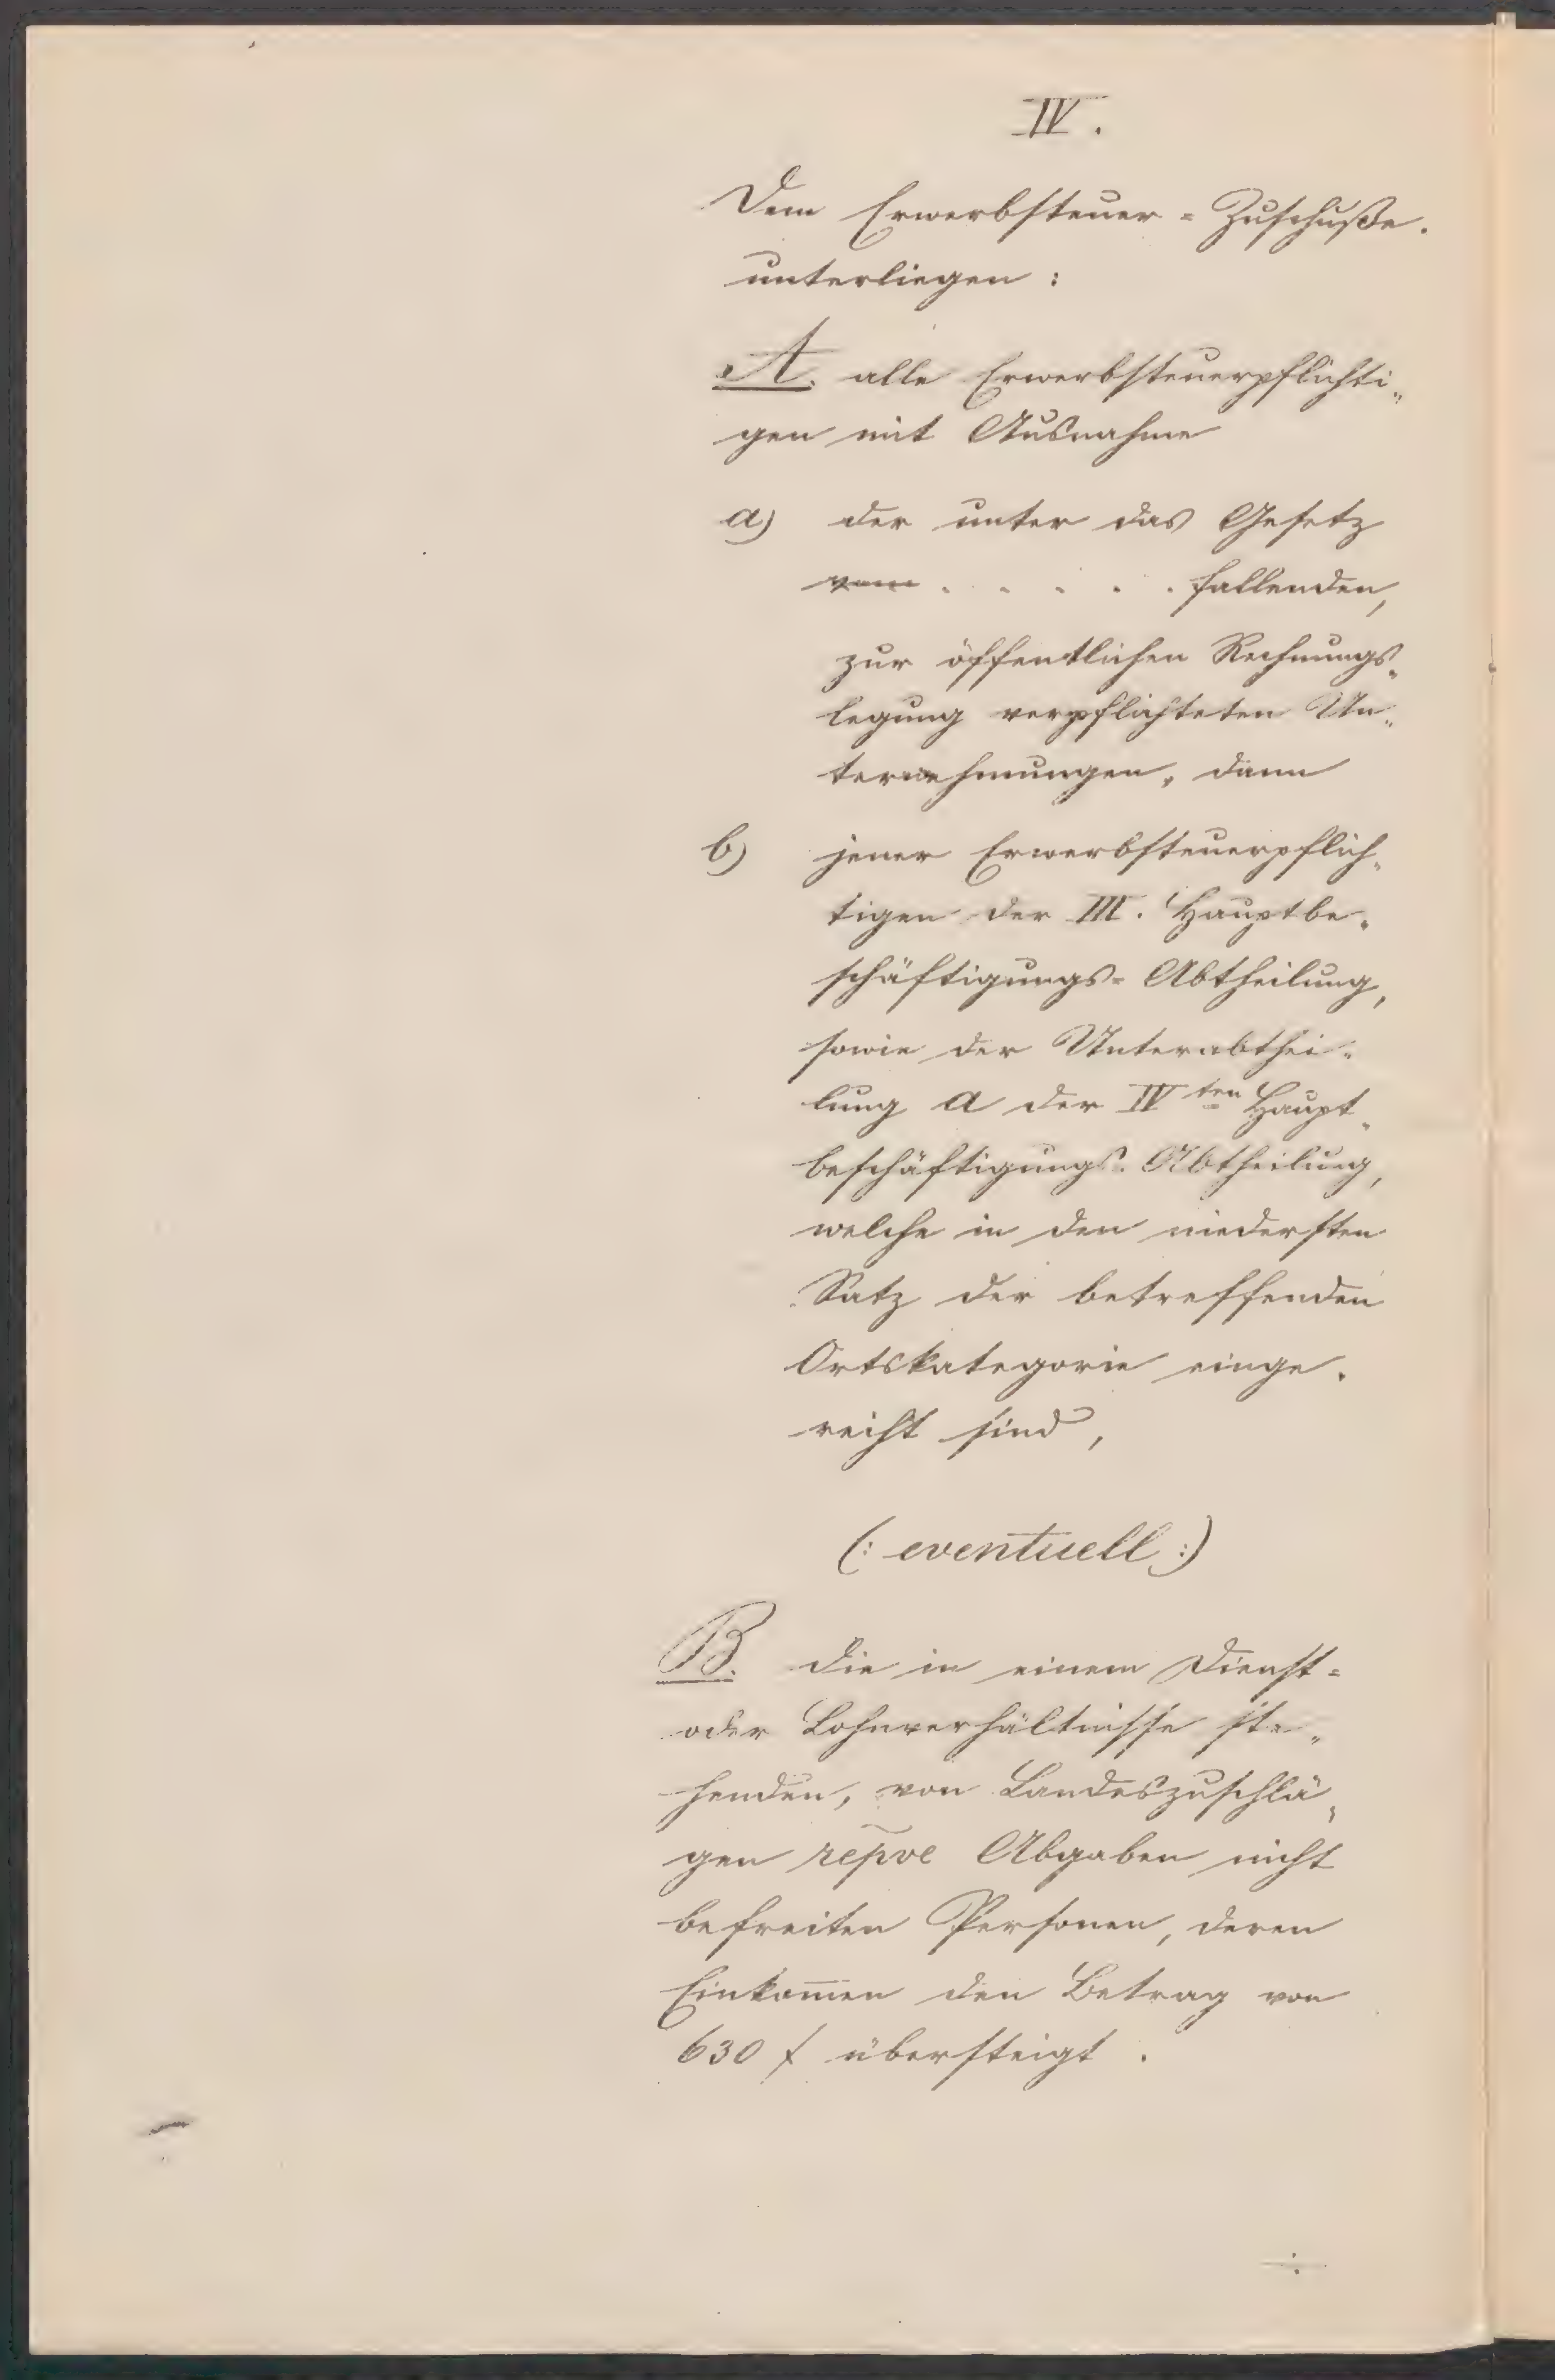 IV.
Dem Erwerbsteuer=Zuschuße
unterliegen:
A. alle Erwerbsteuerpflichti„
gen mit Ausnahme
a) der unter das Gesetz
vom . . . . . fallenden,
zur öffentlichen Rechnungs„
legung verpflichteten Un„
ternehmungen, dann
b) jener Erwerbsteuerpflich„
tigen der III. Hauptbe„
schäftigungs=Abtheilung,
sowie der Unterabthei„
lung a der IVten Haupt„
beschäftigungs=Abtheilung,
welche in den niedersten
Satz der betreffenden
Ortskategorie einge„
reiht sind,
(: eventuell :)
B. die in einem Dienst=
oder Lohnverhältnisse ste„
henden, von Landeszuschlä„
gen repve Abgaben nicht
befreiten Personen, deren
Einkom̅en den Betrag von
630 f übersteigt.
./.